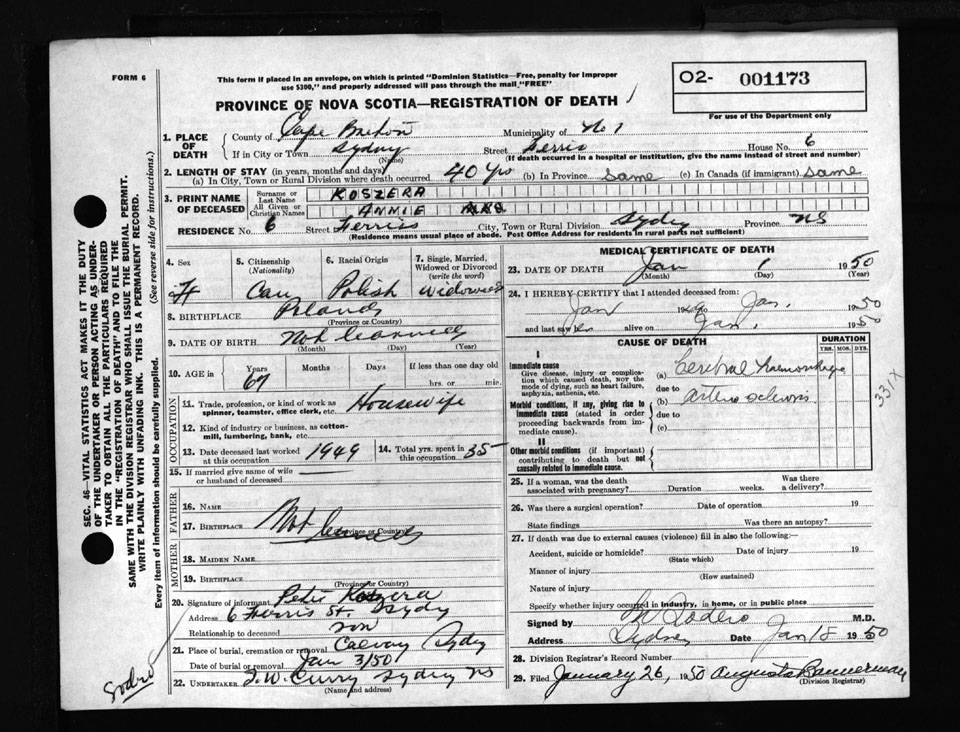 FORM 6
This form if placed in an envelope, on which is printed "Dominion Statistics—Free, penalty for improper
use $300," and properly addressed will pass through the mail "FREE"
O2- 001173
For use of the Department only
PROVINCE OF NOVA SCOTIA—REGISTRATION OF DEATH
1. PLACE OF DEATH
County of Cape Breton Municipality of No 1
If in City or Town Sydney (Name) Street Ferris House No. 6
(If death occurred in a hospital or institution, give the name instead of street and number)
2. LENGTH OF STAY (in years, months and days)
(a) In City, Town or Rural Division where death occurred 40 yrs (b) In Province same (c) In Canada (if immigrant) same
3. PRINT NAME OF DECEASED
Surname or Last Name KOSZERA
All Given or Christian Names ANNIE MRS
RESIDENCE No. 6 Street Ferriss City, Town or Rural Division Sydney Province NS
(Residence means usual place of abode. Post Office Address for residents in rural parts not sufficient)
4. Sex F
5. Citizenship (Nationality) Can
6. Racial Origin Polish
7. Single, Married, Widowed or Divorced (write the word) widowed
8. BIRTHPLACE Poland
(Province or Country)
9. DATE OF BIRTH Not learned
(Month) (Day) (Year)
10. AGE in Years 67 Months Days If less than one day
hrs. or min.
OCCUPATION
11. Trade, profession, or kind of work as spinner, teamster, office clerk, etc. Housewife
12. Kind of industry or business, as cotton-mill, lumbering, bank, etc.
13. Date deceased last worked at this occupation 1949
14. Total yrs. spent in this occupation 35
15. If married give name of wife or husband of deceased
FATHER
16. NAME
17. BIRTHPLACE Not learned
(Province or Country)
MOTHER
18. MAIDEN NAME
19. BIRTHPLACE
(Province or Country)
20. Signature of informant Peter Koszera
Address 6 Ferris St. Sydney
Relationship to deceased son
21. Place of burial, cremation or removal Calvary Sydney
Date of burial or removal Jan 3/50
22. UNDERTAKER T. W. Curry Sydney NS
(Name and address)
MEDICAL CERTIFICATE OF DEATH
23. DATE OF DEATH Jan 1 1950
(Month) (Day) (Year)
24. I HEREBY CERTIFY that I attended deceased from:
Jan 1949 Jan. 1950
and last saw her alive on Jan. 1950
CAUSE OF DEATH
DURATION
YRS. MOS. DYS.
I
Immediate cause
Give disease, injury or complication which caused death, not the mode of dying, such as heart failure, asphyxia, asthenia, etc.
(a) Cerebral Haemorrhage
due to
Morbid conditions, if any, giving rise to immediate cause (stated in order proceeding backwards from immediate cause).
(b) arterio sclerosis
due to
(c)
331X
II
Other morbid conditions (if important) contributing to death but not causally related to immediate cause.
25. If a woman, was the death associated with pregnancy? Duration weeks. Was there a delivery?
26. Was there a surgical operation? Date of operation 19
State findings Was there an autopsy?
27. If death was due to external causes (violence) fill in also the following:
Accident, suicide or homicide? Date of injury 19
(State which)
Manner of injury
(How sustained)
Nature of injury
Specify whether injury occurred in industry, in home, or in public place
Signed by M Sodero M.D.
Address Sydney Date Jan 18 1950
28. Division Registrar's Record Number
29. Filed January 26, 1950 Augusta Bannerman
(Division Registrar)
Sodero
SEC. 46 VITAL STATISTICS ACT MAKES IT THE DUTY
OF THE UNDERTAKER OR PERSON ACTING AS UNDER-
TAKER TO OBTAIN ALL THE PARTICULARS REQUIRED
IN THE "REGISTRATION OF DEATH" AND TO FILE THE
SAME WITH THE DIVISION REGISTRAR WHO SHALL ISSUE THE BURIAL PERMIT.
WRITE PLAINLY WITH UNFADING INK. THIS IS A PERMANENT RECORD.
Every item of information should be carefully supplied. (See reverse side for instructions.)